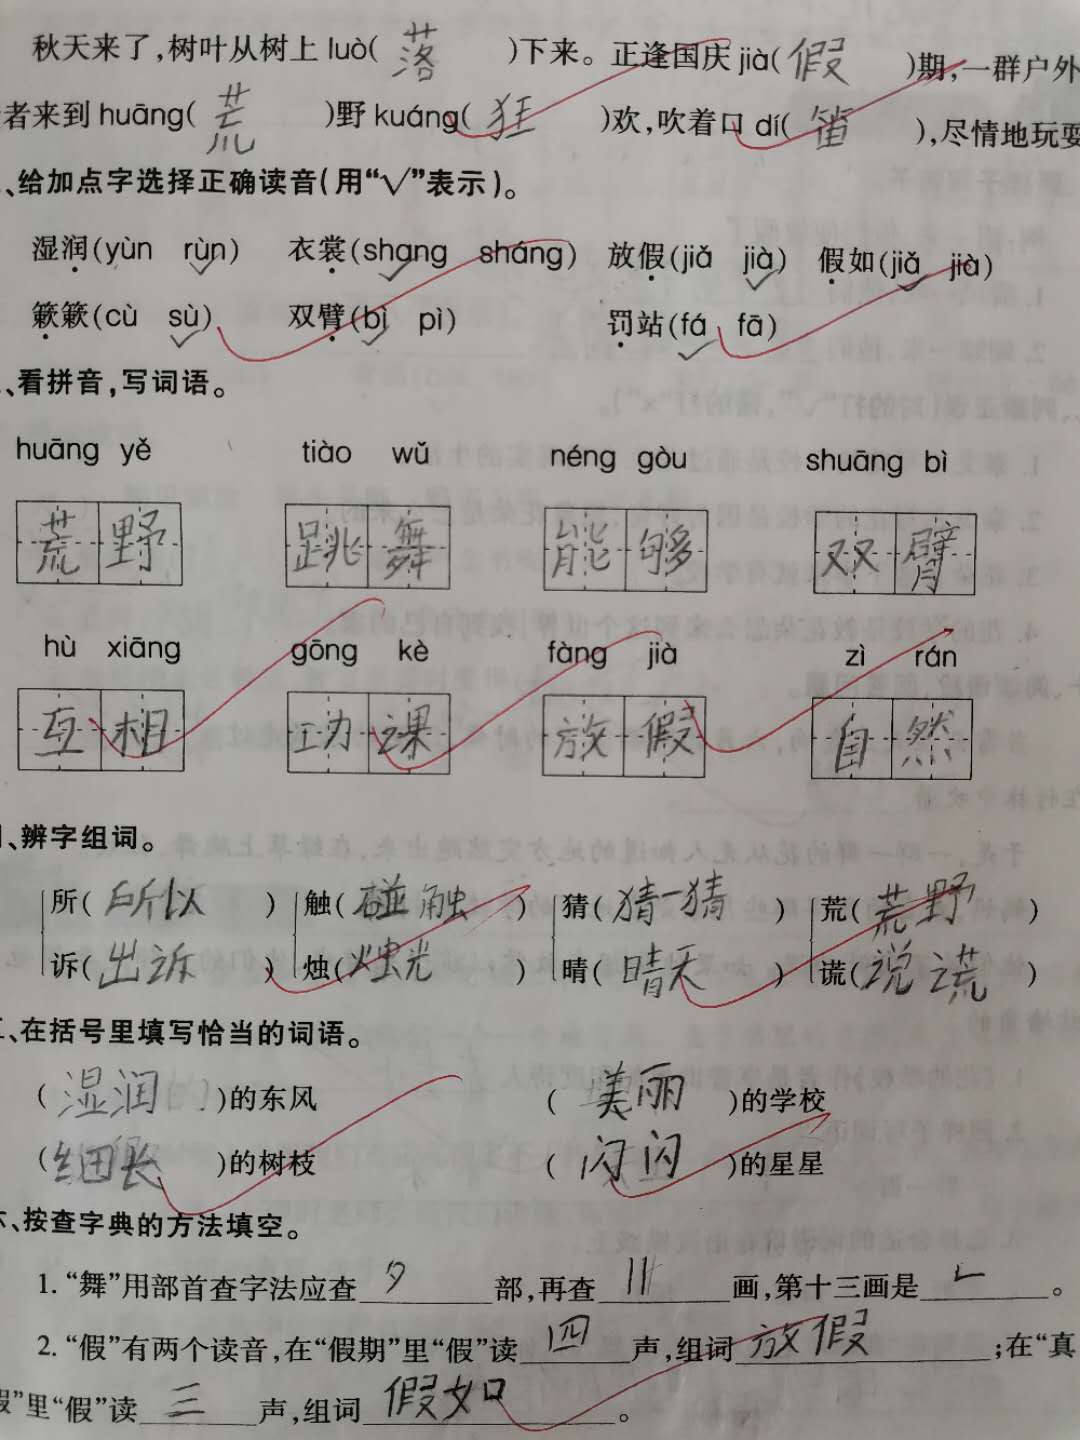 秋天来了,树叶从树上luò(落)下来。正逢国庆jià(假)期,一群户外
者来到huāng(荒)野kuáng(狂)欢,吹着口dí(笛),尽情地玩耍
、给加点字选择正确读音(用“√”表示)。
湿润(yùn rùn√) 衣裳(shang√ sháng) 放假(jiǎ jià√) 假如(jiǎ√ jià)
簌簌(cù sù√) 双臂(bì√ pì) 罚站(fá√ fā)
、看拼音,写词语。
huāng yě tiào wǔ néng gòu shuāng bì
荒野 跳舞 能够 双臂
hù xiāng gōng kè fàng jià zì rán
互相 功课 放假 自然
、辨字组词。
所(所以) 触(碰触) 猜(猜一猜) 荒(荒野)
诉(出诉) 烛(烛光) 晴(晴天) 谎(说谎)
、在括号里填写恰当的词语。
(湿润)的东风 (美丽)的学校
(细长)的树枝 (闪闪)的星星
、按查字典的方法填空。
1.“舞”用部首查字法应查夕部,再查11画,第十三画是𠃊。
2.“假”有两个读音,在“假期”里“假”读四声,组词放假;在“真
假”里“假”读三声,组词假如。